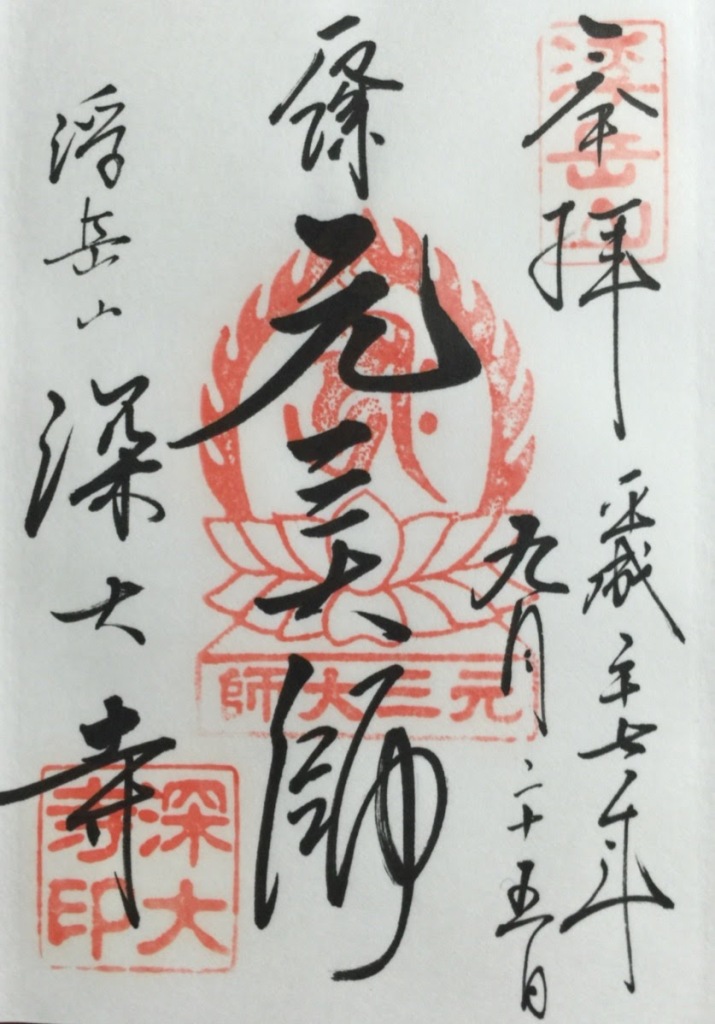 奉拝
平成二十七年
九月二十五日
元三大師
浮岳山 深大寺
浮岳山
元三大師
深大寺印